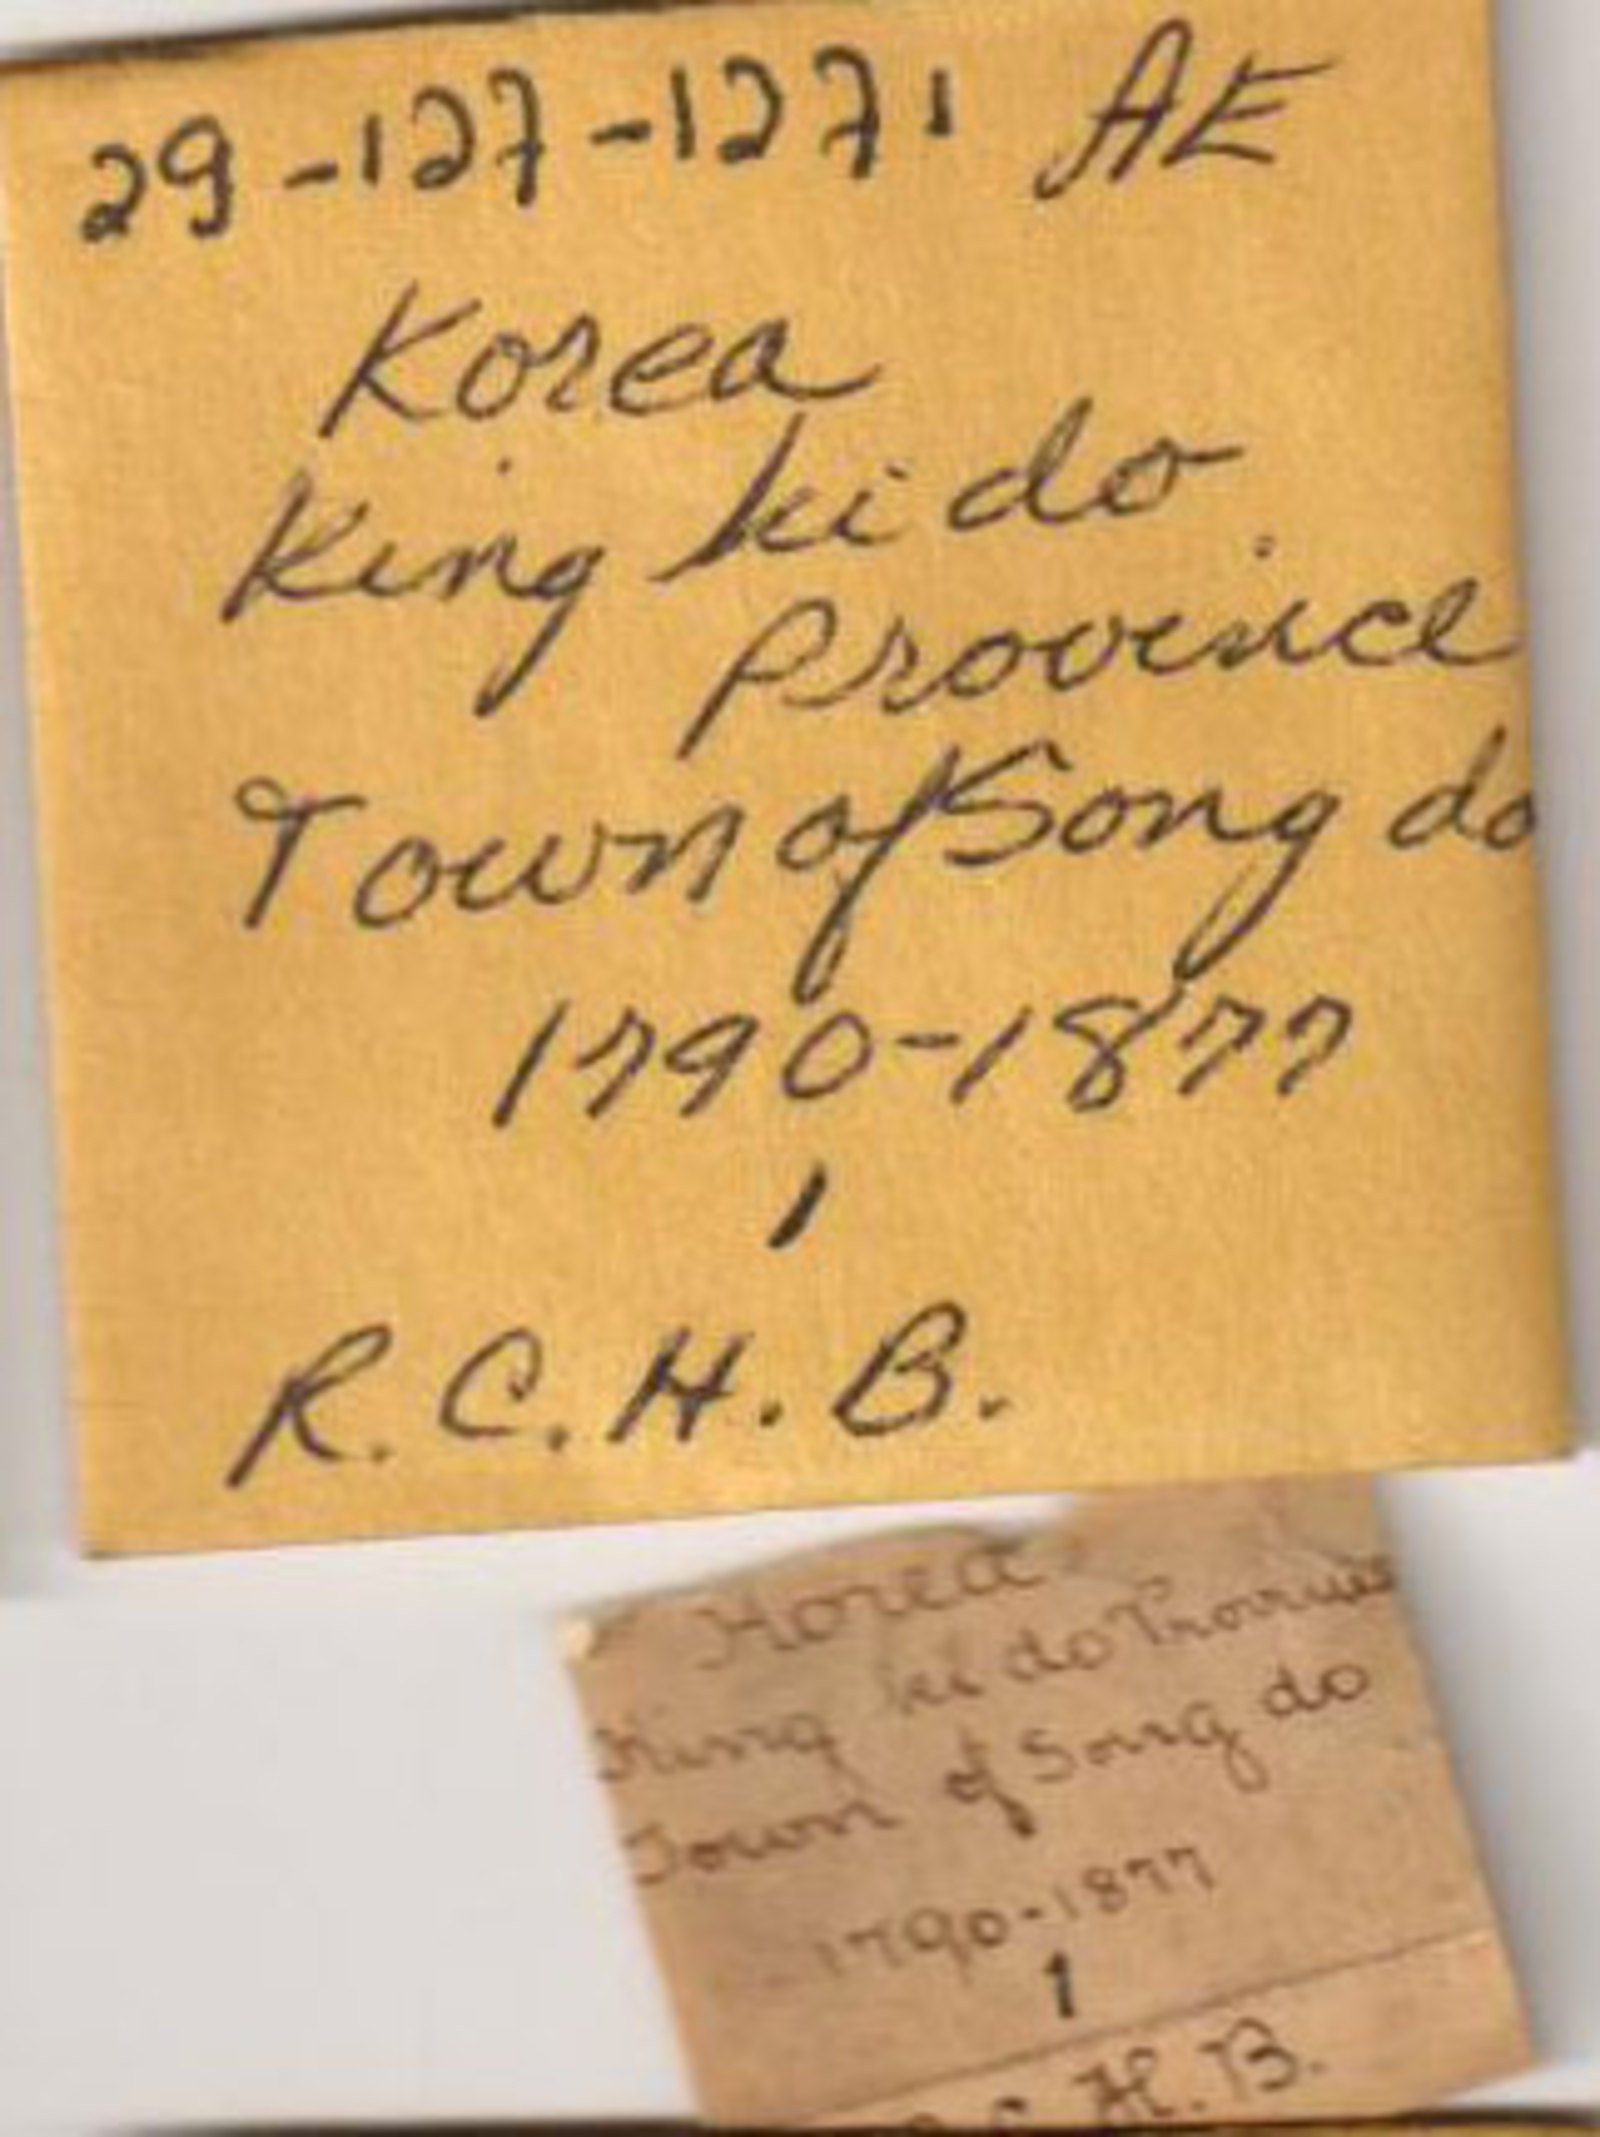 29-127-1271 AE
Korea
King ki do
Province
Town of Song do
1790-1877
1
R.C.H.B.
Korea
King ki do Province
Town of Song do
1790-1877
1
C. H. B.